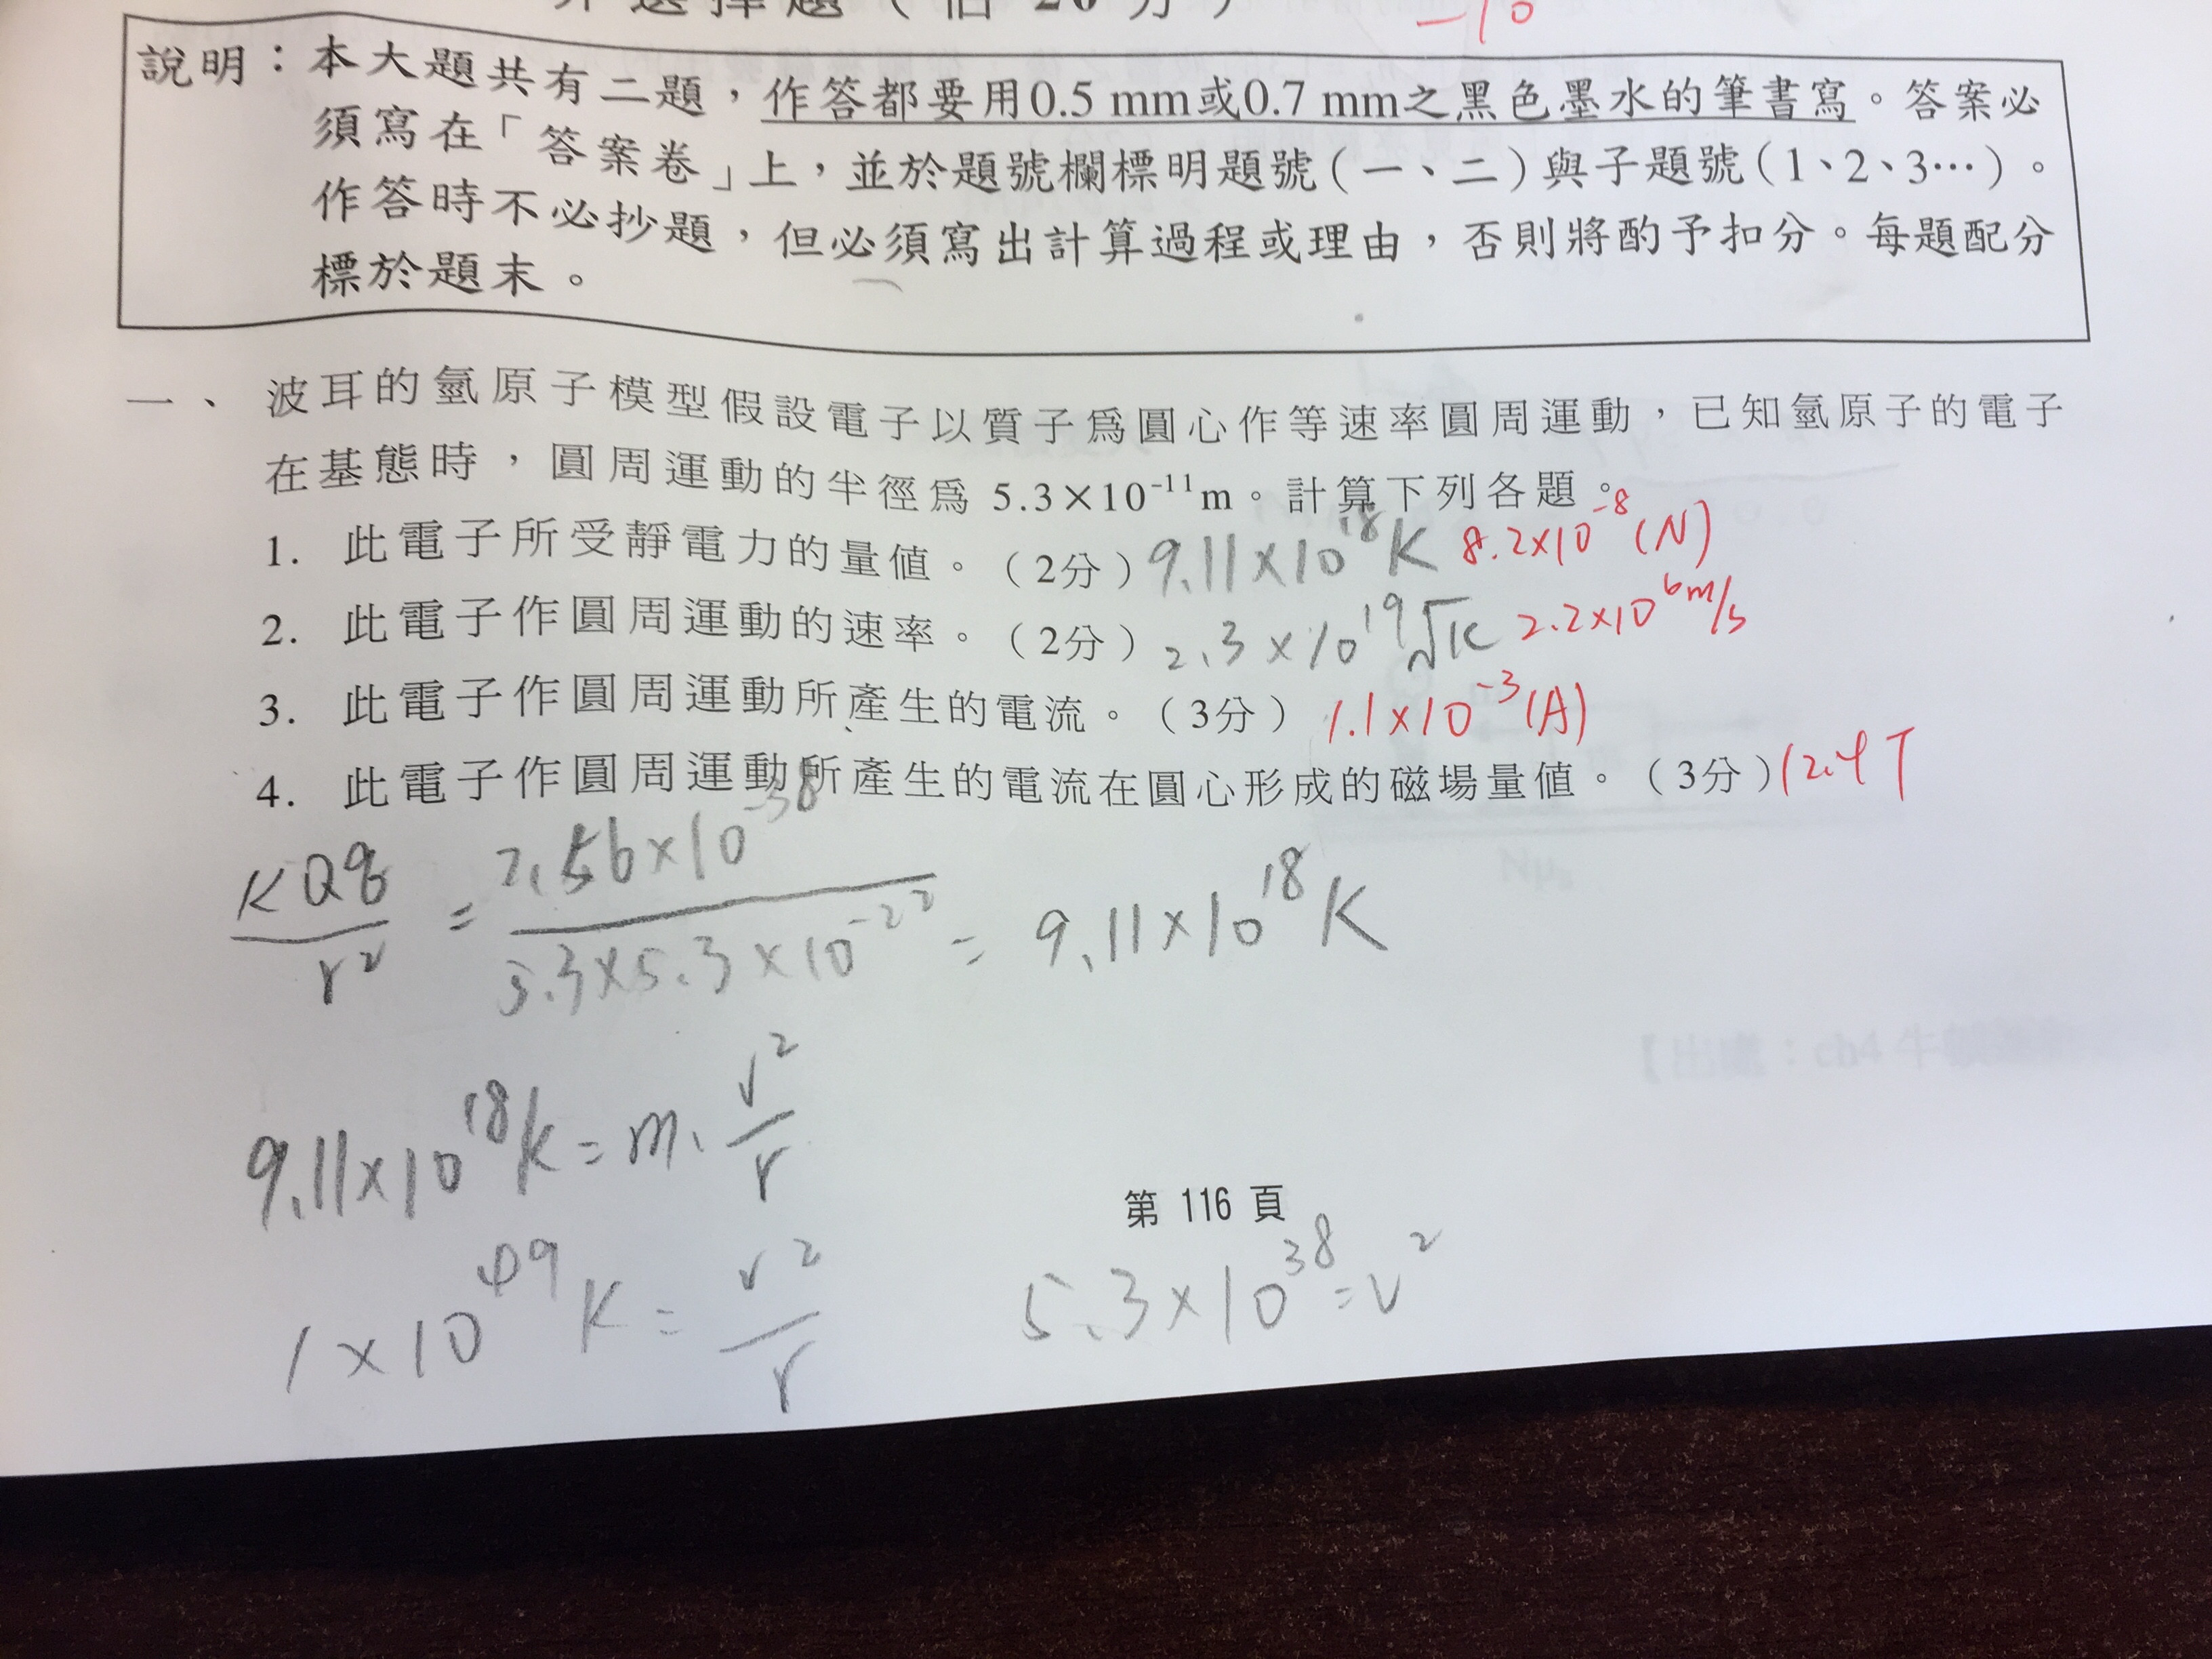 非選擇題（佔 20 分）
-10
說明：本大題共有二題，作答都要用0.5 mm或0.7 mm之黑色墨水的筆書寫。答案必
須寫在「答案卷」上，並於題號欄標明題號（一、二）與子題號（1、2、3…）。
作答時不必抄題，但必須寫出計算過程或理由，否則將酌予扣分。每題配分
標於題末。
一、波耳的氫原子模型假設電子以質子為圓心作等速率圓周運動，已知氫原子的電子
在基態時，圓周運動的半徑為 5.3×10⁻¹¹m。計算下列各題。
1. 此電子所受靜電力的量值。（2分）9.11×10¹⁸K 8.2×10⁻⁸(N)
2. 此電子作圓周運動的速率。（2分）2.3×10¹⁹√K 2.2×10⁶m/s
3. 此電子作圓周運動所產生的電流。（3分）1.1×10⁻³(A)
4. 此電子作圓周運動所產生的電流在圓心形成的磁場量值。（3分）12.4T
KQq/r² = 2.56×10⁻³⁸/5.3×5.3×10⁻²² = 9.11×10¹⁸K
9.11×10¹⁸K = m·v²/r
第 116 頁
1×10⁴⁹K = v²/r
5.3×10³⁸=v²